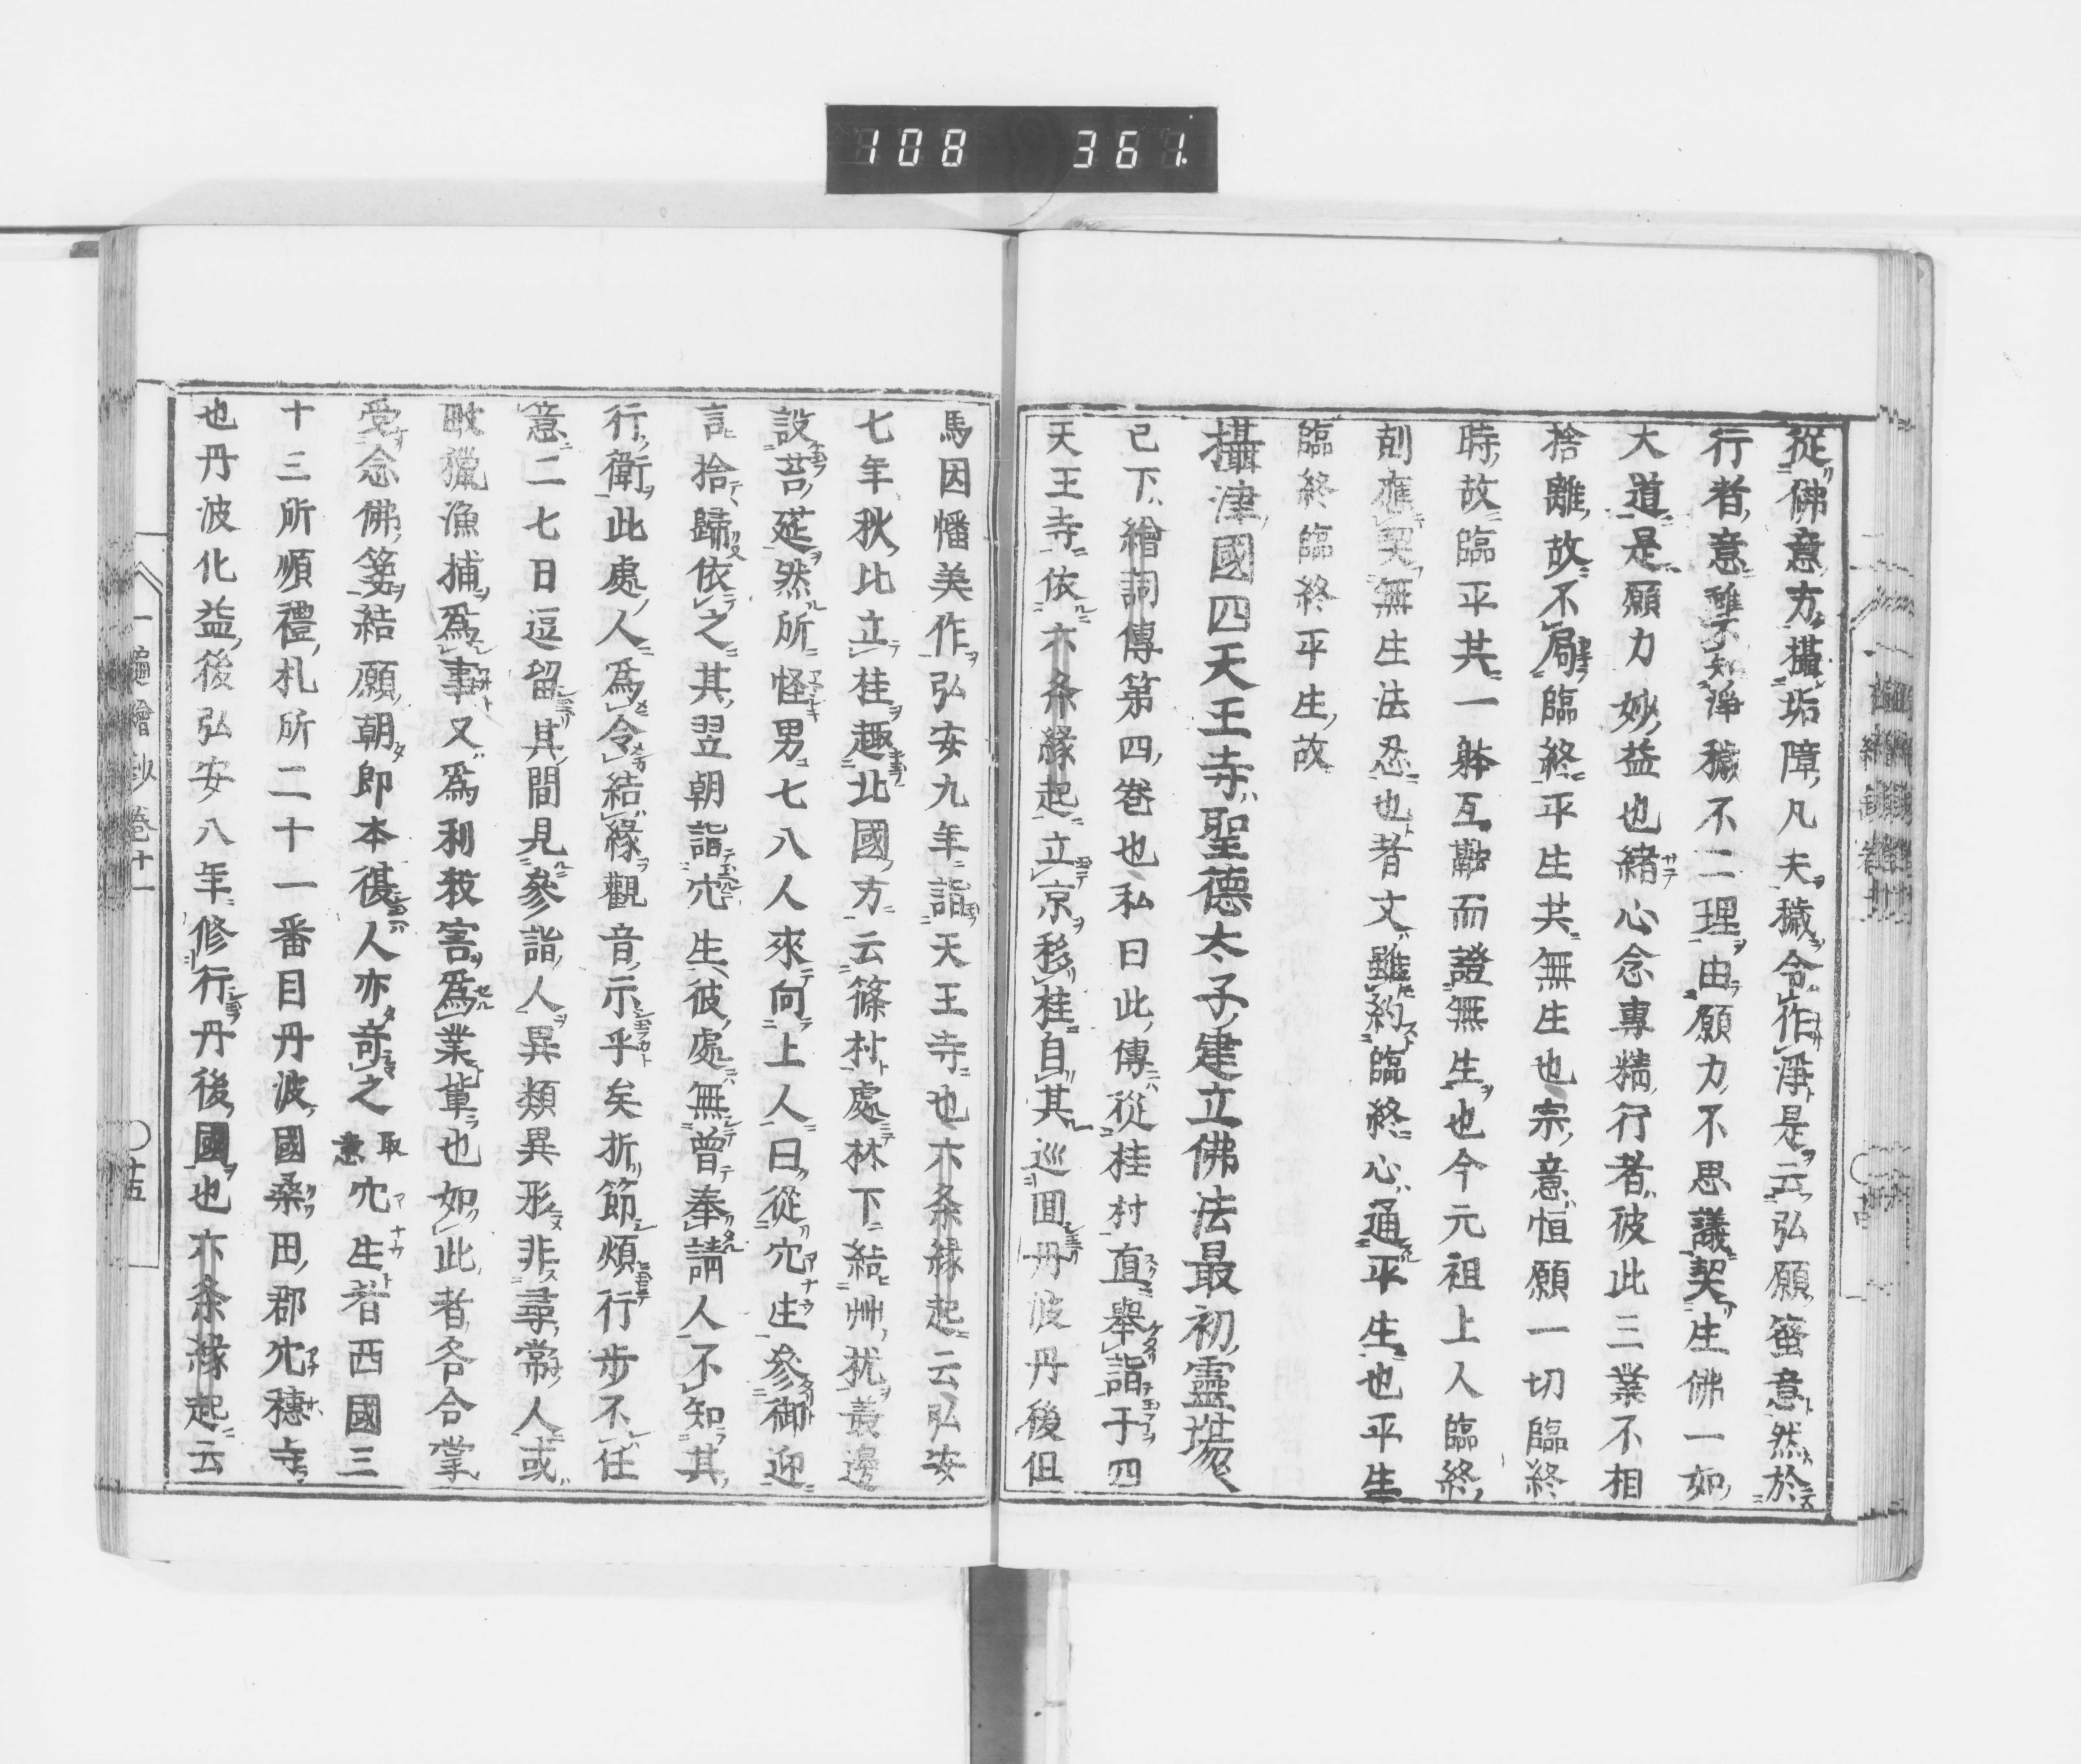 108 361
從佛意方攝垢障凡夫穢令作淨是云弘願蜜意然於
行者意雖不知淨穢不二理由願力不思議契生佛一如
大道是願力妙益也緒心念專精行者彼此三業不相
捨離故不局臨終平生共無生也宗意恒願一切臨終
時故臨平共一躰互融而證無生也今元祖上人臨終
剋應契無生法忍也者文雖約臨終心通平生也平生
臨終臨終平生故
攝津國四天王寺聖德太子建立佛法最初靈場
已下繪詞傳第四卷也私曰此傳從桂村直舉詣于四
天王寺依六条緣起立京移桂自其巡囬丹波丹後但
馬因幡美作弘安九年詣天王寺也六条緣起云弘安
七年秋比立桂趣北國方云篠村處林下結艸扰叢邊
設苔莚然所怪男七八人來向上人曰從穴生參御迎
言捨歸依之其翌朝詣穴生彼處無曾奉請人不知其
行衛此處人為令結緣觀音示乎矣折節煩行步不任
意二七日逗留其間見參詣人異類異形非尋常人或
畋獵漁捕為事又為利殺害為業軰也如此者各合掌
受念佛筭結願朝即本復人亦奇之取意穴生者西國三
十三所順禮札所二十一番目丹波國桑田郡穴穗寺
也丹波化益後弘安八年修行丹後國也六条緣起云
一遍繪抄卷十一 十五